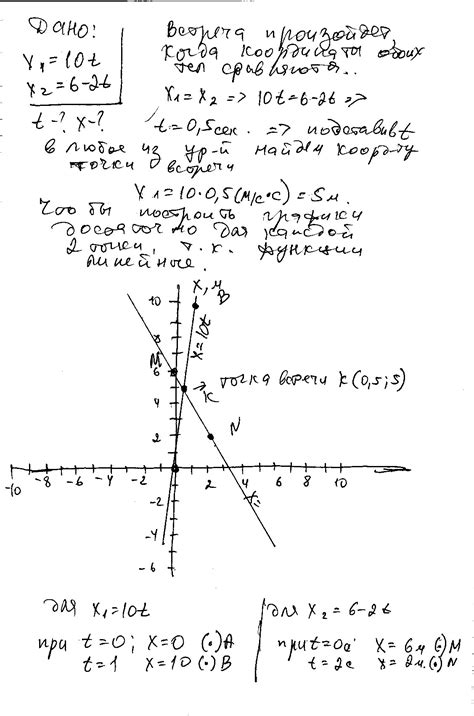 Дано:
x₁ = 10t
x₂ = 6-2t
t-? x-?
Встреча произойдет,
когда координаты обоих
тел сравняются..
x₁ = x₂ => 10t = 6-2t =>
t = 0,5 сек. => подставив t
в любое из ур-й найдем коорд-ту
точки встречи
x₁ = 10·0,5 (м/с·с) = 5 м.
Что бы построить графики
достаточно для каждой
2 точки, т.к. функции
линейные.
x, м
B
10
8
x = 10t
M
6
K
→ точка встречи K (0,5; 5)
N
2
-10 -8 -6 -4 -2 2 4 6 8 10
-2
-4
-6
для x₁ = 10t
при t = 0; x = 0 (·) A
t = 1 x = 10 (·) B
для x₂ = 6-2t
при t = 0с x = 6м (·) M
t = 2с x = 2м. (·) N